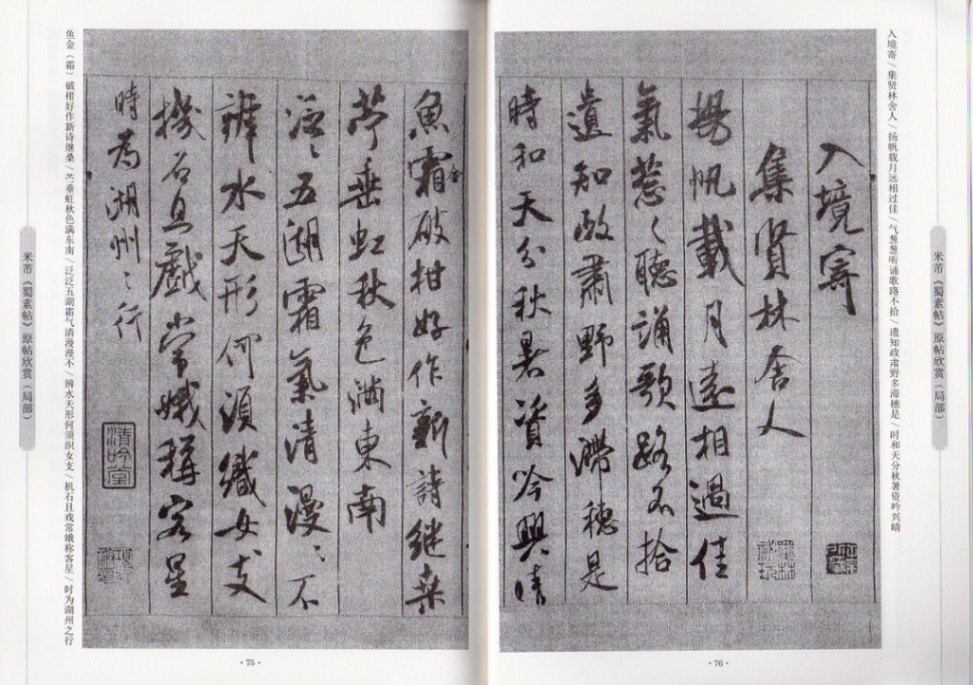 米芾《蜀素帖》原帖欣赏(局部)
入境寄/集贤林舍人/扬帆载月远相过佳/气葱葱听诵歌路不拾/遗知政肃野多滞穗是/时和天分秋暑资吟兴晴
入境寄
集賢林舍人
揚帆載月遠相過佳
氣葱〻聽誦歌路不拾
遺知政肅野多滯穗是
時和天分秋暑資吟興晴
·76·
魚霜金破柑好作新詩繼桑
苧垂虹秋色滿東南
泛〻五湖霜氣清漫〻不
辨水天形何須織女支
機石且戲常娥稱客星
時為湖州之行
清吟堂
鱼金(霜)破柑好作新诗继桑/苎垂虹秋色满东南/泛泛五湖霜气清漫漫不/辨水天形何须织女支/机石且戏常娥称客星/时为湖州之行
米芾《蜀素帖》原帖欣赏(局部)
·75·